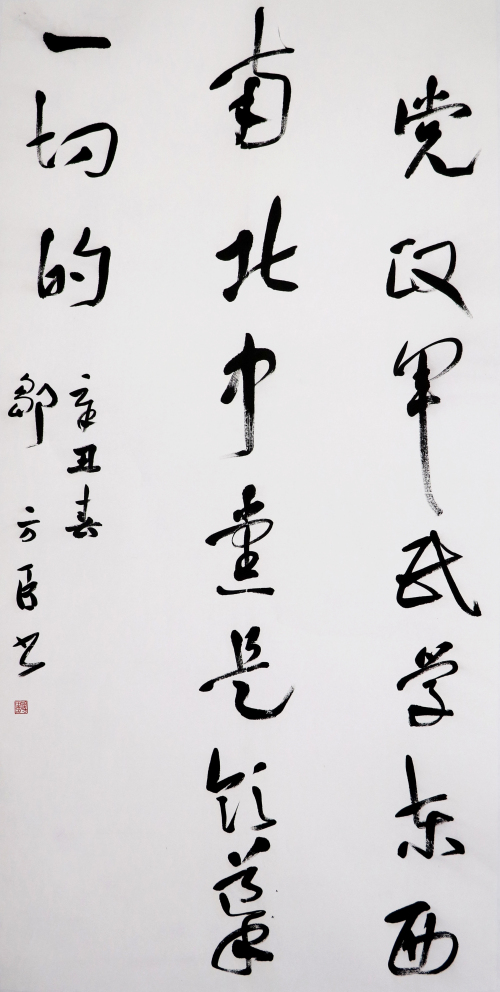 党政军民学东西
南北中党是领导
一切的
辛丑春
邹方臣书